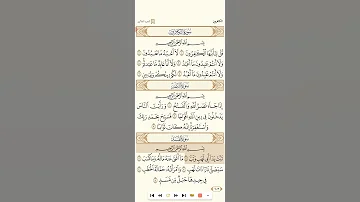 الكافرون
سُورَةُ الكَافِرُونَ
بِسْمِ اللَّهِ الرَّحْمَٰنِ الرَّحِيمِ
قُلْ يَا أَيُّهَا الْكَافِرُونَ ۝ لَا أَعْبُدُ مَا تَعْبُدُونَ ۝
وَلَا أَنتُمْ عَابِدُونَ مَا أَعْبُدُ ۝ وَلَا أَنَا عَابِدٌ مَّا عَبَدتُّمْ ۝
وَلَا أَنتُمْ عَابِدُونَ مَا أَعْبُدُ ۝ لَكُمْ دِينُكُمْ وَلِيَ دِينِ ۝
سُورَةُ النَّصْرِ
بِسْمِ اللَّهِ الرَّحْمَٰنِ الرَّحِيمِ
إِذَا جَاءَ نَصْرُ اللَّهِ وَالْفَتْحُ ۝ وَرَأَيْتَ النَّاسَ
يَدْخُلُونَ فِي دِينِ اللَّهِ أَفْوَاجًا ۝ فَسَبِّحْ بِحَمْدِ رَبِّكَ
وَاسْتَغْفِرْهُ إِنَّهُ كَانَ تَوَّابًا ۝
سُورَةُ المَسَدِ
بِسْمِ اللَّهِ الرَّحْمَٰنِ الرَّحِيمِ
تَبَّتْ يَدَا أَبِي لَهَبٍ وَتَبَّ ۝ مَا أَغْنَىٰ عَنْهُ مَالُهُ وَمَا كَسَبَ ۝
سَيَصْلَىٰ نَارًا ذَاتَ لَهَبٍ ۝ وَامْرَأَتُهُ حَمَّالَةَ الْحَطَبِ ۝
فِي جِيدِهَا حَبْلٌ مِّن مَّسَدٍ ۝
٦٠٣